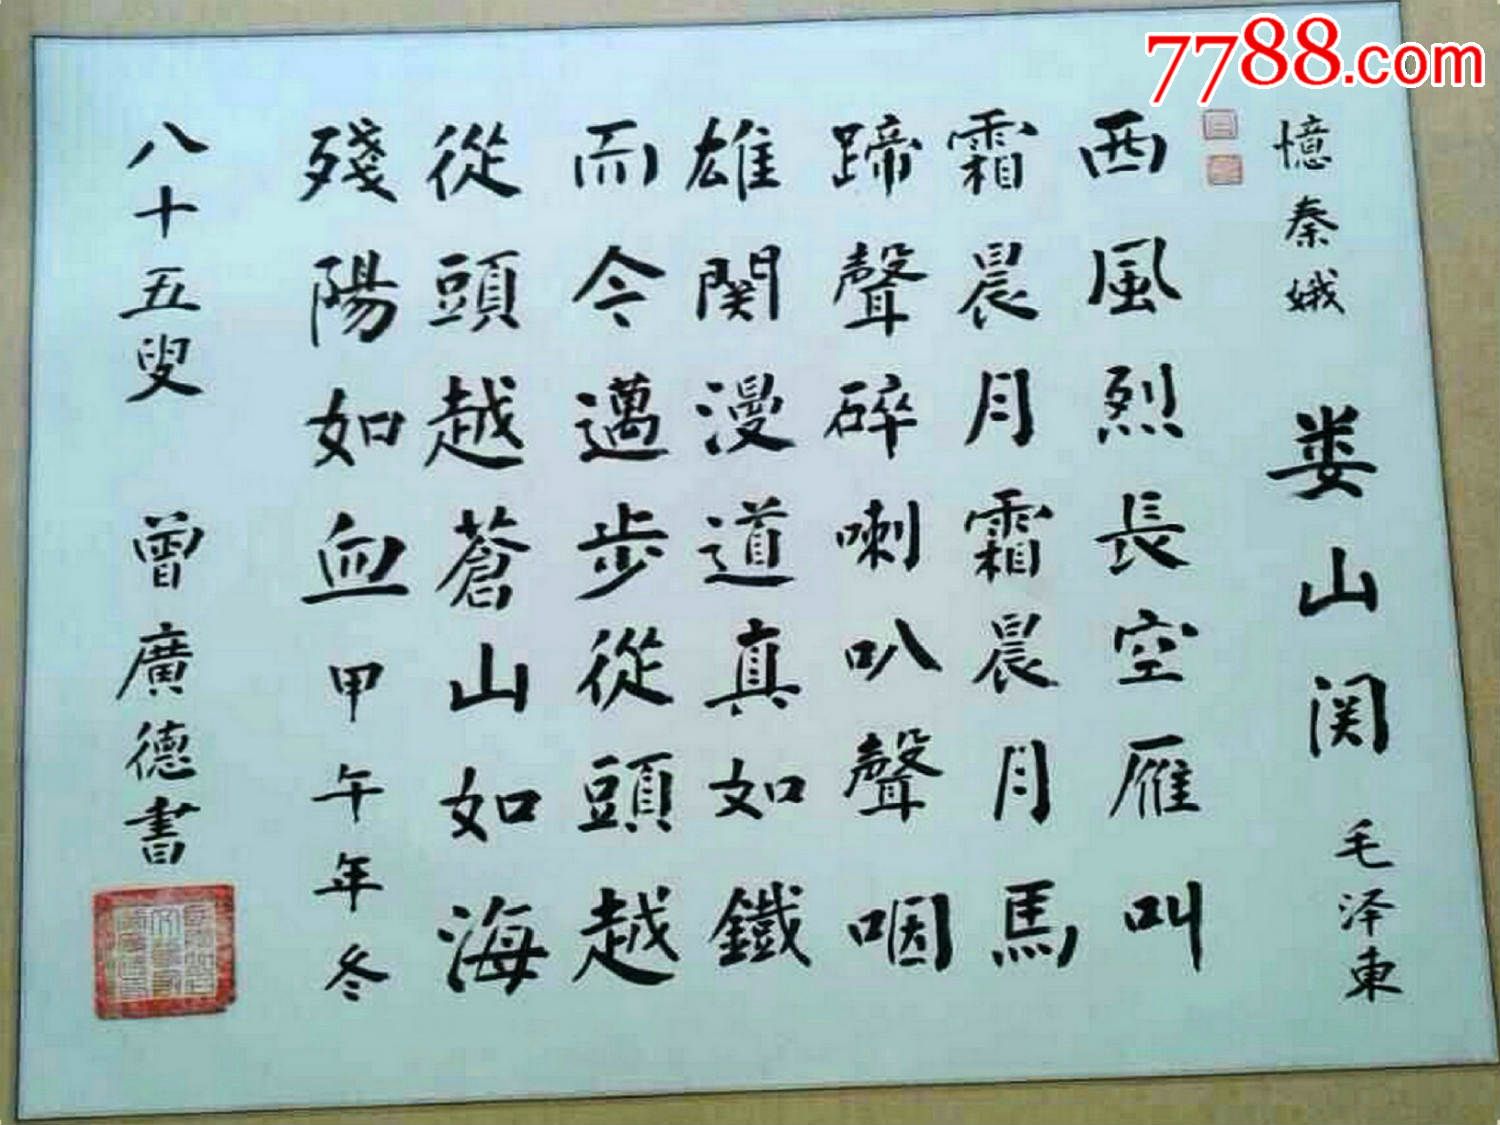 7788.com
憶秦娥 娄山関 毛泽東
西風烈長空雁叫
霜晨月霜晨月馬
蹄聲碎喇叭聲咽
雄関漫道真如鐵
而今邁步從頭越
從頭越蒼山如海
殘陽如血甲午年冬
八十五叟 曾廣德書